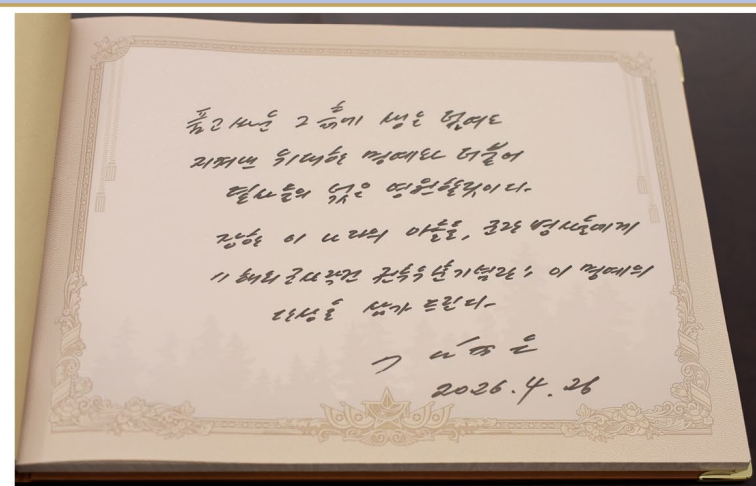 품고싸운 그 흙에 생은
지켜낸 위대한 명예와 더불어
렬사들의 넋은 영원할것이다.
장한 이 나라의 아들들, 군관 병사들에게
《해외군사작전 전투위훈기념관》 이 명예의
단상을 삼가 드린다.
김정은
2026.4.26